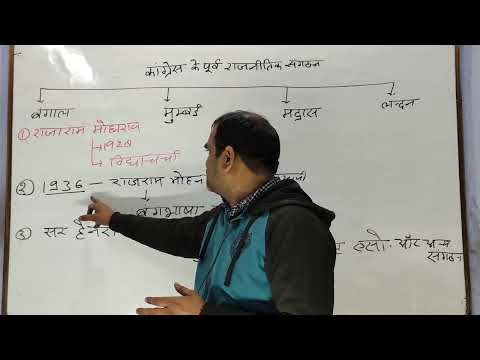 कांग्रेस के पूर्व राजनीतिक संगठन
बंगाल मुम्बई मद्रास लन्दन
① राजाराम मोहनराय
→ 1928
→ विद्या-चर्चा
② 1936 - राजाराम मोहन
बंगभाषा
③ सर
एसो. और अन्य
संगठन